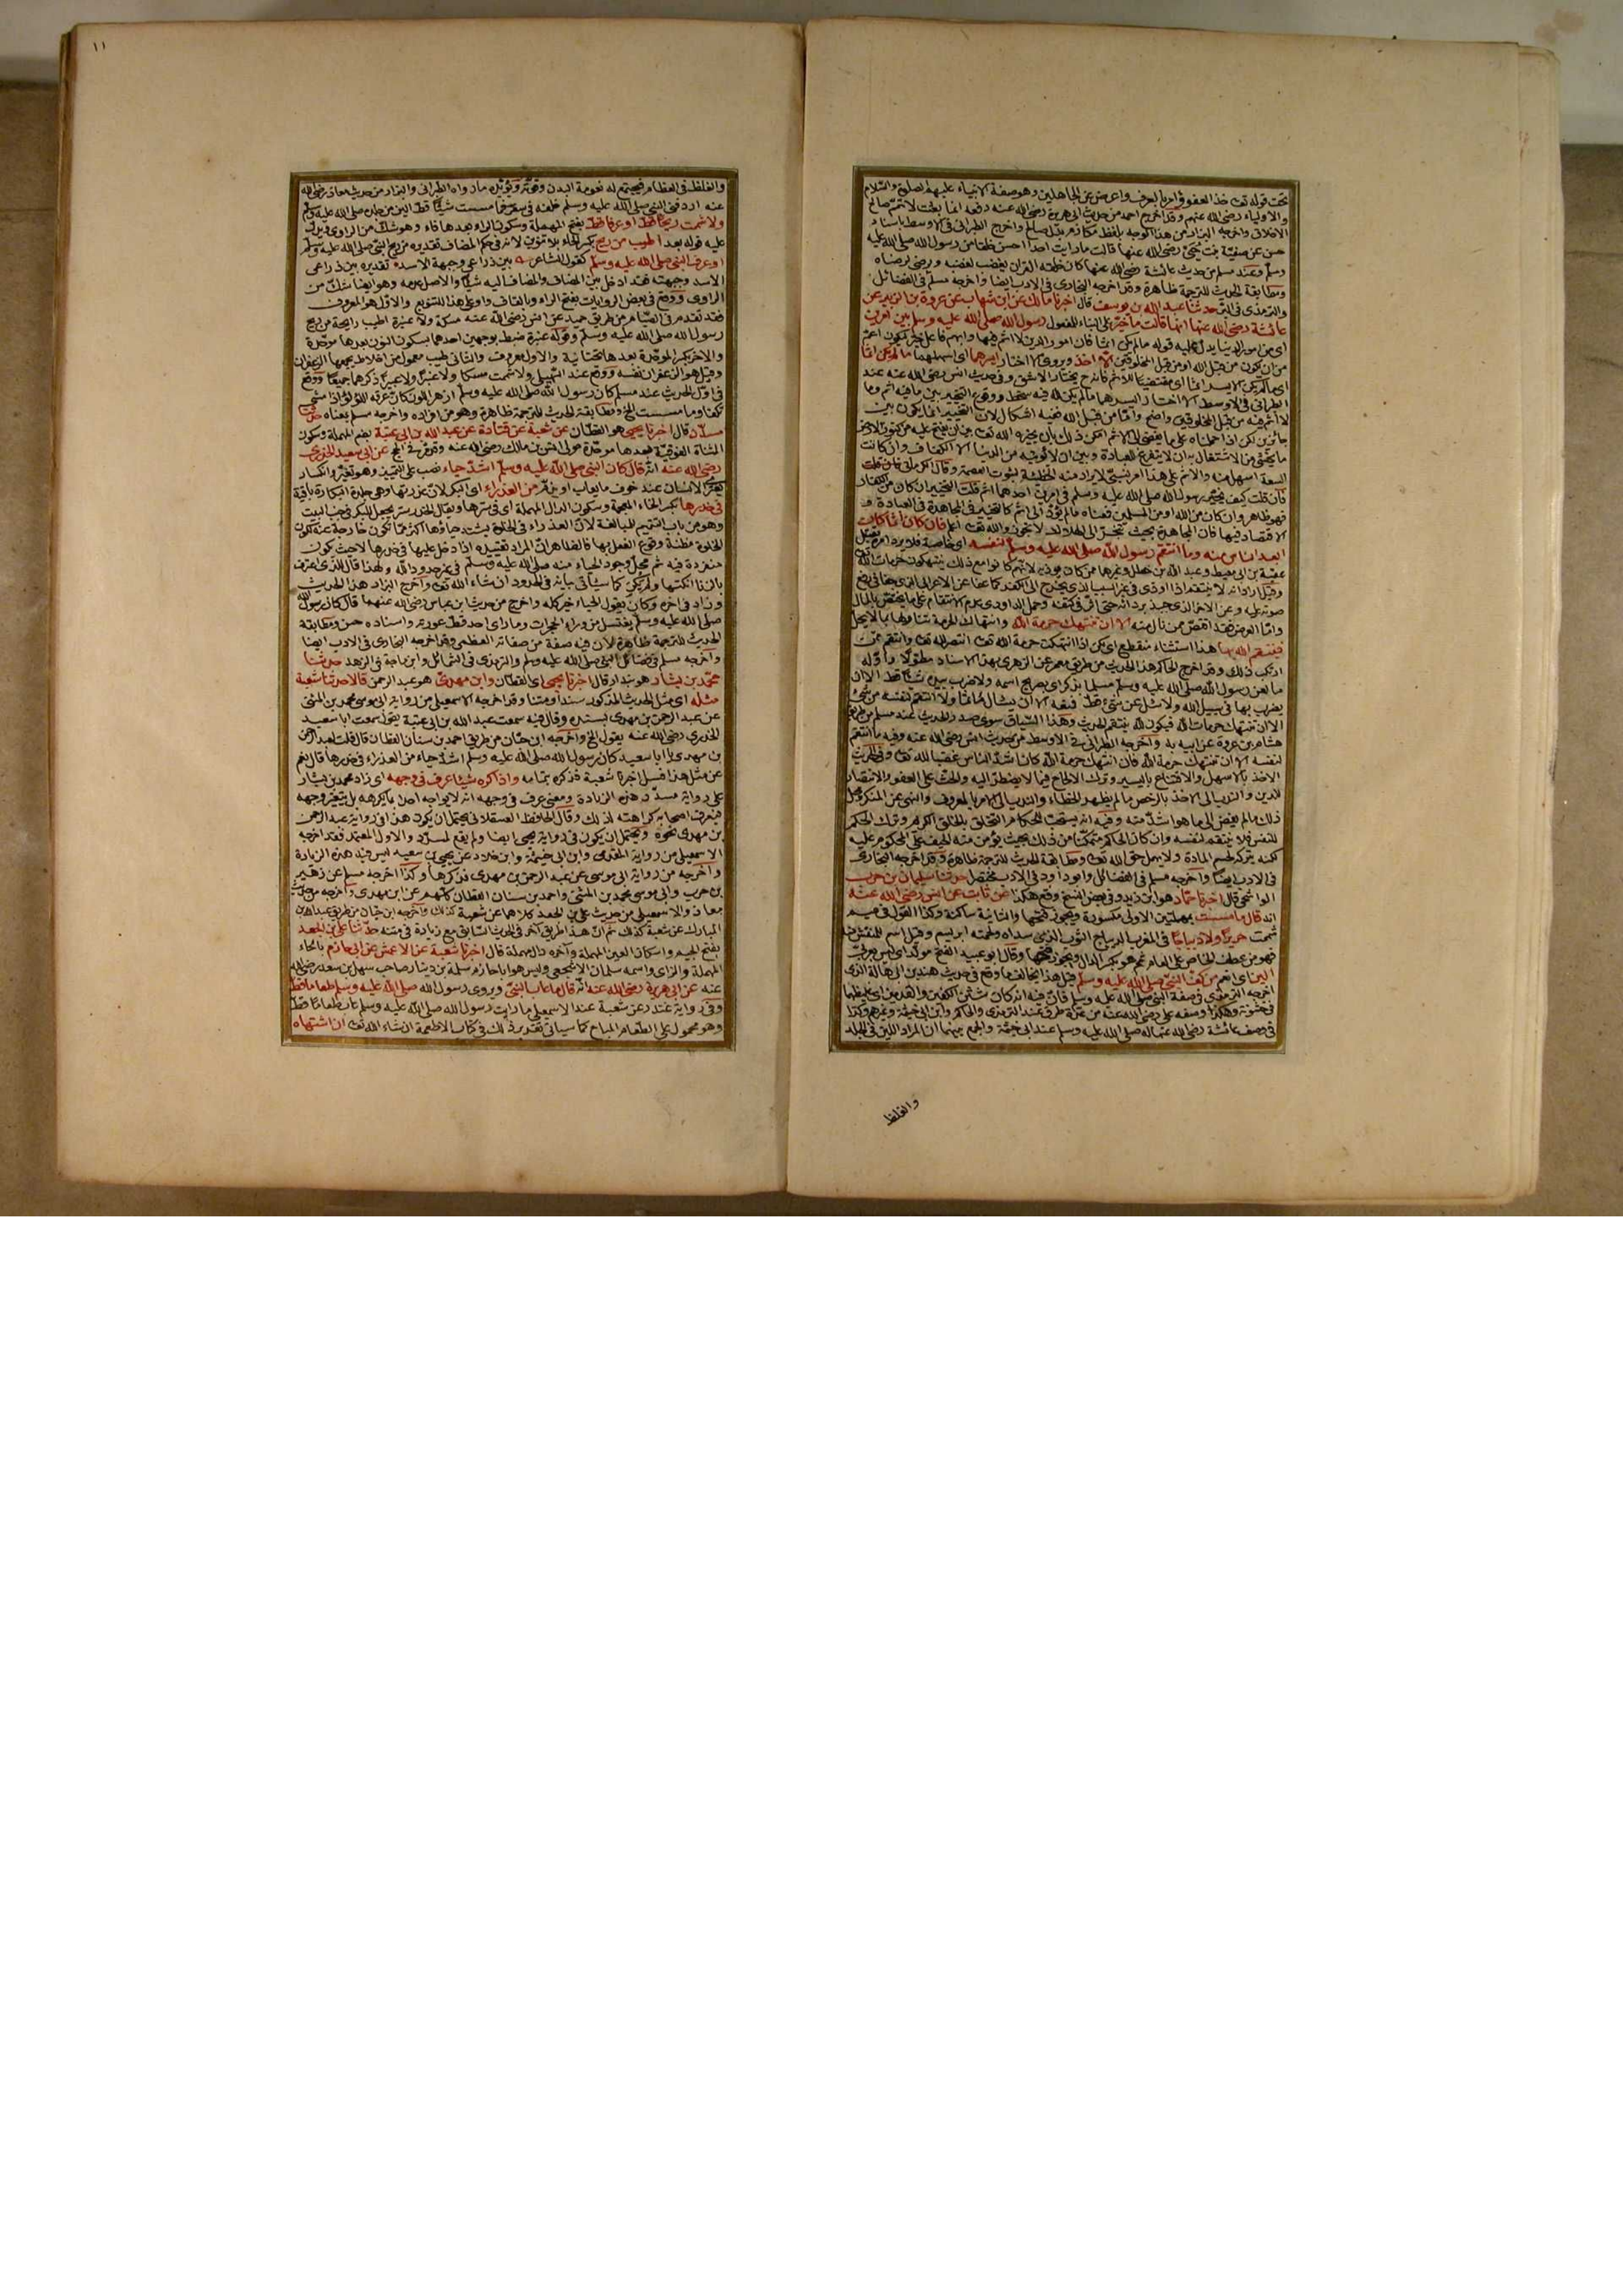 تحت قوله تعـ خذ العفو وأمر بالعرف واعرض عن الجاهلين وهو صفة الانبياء عليهم الصلوة والسلام
والاولياء رضى الله عنهم وقد اخرج احمد من حديث ابى هريرة رضى الله عنه رفعه انما بعثت لاتمم صالح
الاخلاق واخرجه البزار من هذا الوجه بلفظ مكارم بدل صالح واخرج الطبرانى فى الاوسط باسناد
حسن عن صفية بنت حيى رضى الله عنها قالت ما رايت احدا احسن خلقا من رسول الله صلى الله عليه
وسلم وعند مسلم من حديث عائشة رضى الله عنها كان خلقه القرآن يغضب لغضبه ويرضى لرضاه
ومطابقة الحديث للترجمة ظاهرة وقد اخرجه البخارى فى الادب ايضا واخرجه مسلم فى الفضائل
والترمذى فى البر حدثنا عبد الله بن يوسف قال اخبرنا مالك عن ابن شهاب عن عروة بن الزبير عن
عائشة رضى الله عنها انها قالت ما خير على البناء للمفعول رسول الله صلى الله عليه وسلم بين امرين
اى من امور الدنيا يدل عليه قوله ما لم يكن اثما فان امور الدين لا اثم فيها وابهم فاعل خير ليكون اعم
من ان يكون من قبل الله او من قبل المخلوقين الا اخذ ويروى الا اختار ايسرهما اى اسهلهما ما لم يكن اثما
اى ما لم يكن الايسر اثما اى مقتضيا للاثم فانه ح يختار الاشق وفى حديث انس رضى الله عنه عند
الطبرانى فى الاوسط الا اختار ايسرهما ما لم يكن لله فيه سخط ووقوع التخيير بين ما فيه اثم وما
لا اثم فيه من قبل المخلوقين واضح واما من قبل الله ففيه اشكال لان التخيير انما يكون بين
جائزين لكن اذا حملناه على ما يفضى الى الاثم امكن ذلك بان يخيره الله تعـ بين ان يفتح عليه من كنوز الارض
ما يخشى من الاشتغال به ان لا يتفرغ للعبادة وبين ان لا يؤتيه من الدنيا الا الكفاف وان كانت
السعة اسهل منه والاثم على هذا امر نسبى لا يراد منه الخطيئة لثبوت العصمة وقال الكرمانى فان قلت
فان قلت كيف يخير رسول الله صلى الله عليه وسلم فى امرين احدهما اثم قلت التخيير ان كان من الكفار
فهو ظاهر وان كان من الله او من المسلمين فمعناه ما لم يؤد الى اثم كالتخيير فى المجاهدة فى العبادة و
الاقتصاد فيها فان المجاهدة بحيث تنجر الى الهلاك لا تجوز والله تعـ اعلم فان كان اثما كان
ابعد الناس منه وما انتقم رسول الله صلى الله عليه وسلم لنفسه اى خاصة فلا يرد امره بقتل
عقبة بن ابى معيط وعبد الله بن خطل وغيرهما ممن كان يوذيه لانهم كانوا مع ذلك ينتهكون حرمات الله
وقيل اراد انه لا ينتقم اذا اوذى فى غير السبب الذى يخرج الى الكفر كما عفا عن الاعرابى الذى جفا فى رفع
صوته عليه وعن الاخر الذى جبذ بردائه حتى اثر فى كتفه وحمل الداودى عدم الانتقام على ما يختص بالمال
واما العرض فقد اقتص ممن نال منه الا ان تنتهك حرمة الله وانتهاك الحرمة تناولها بما لا يحل
فينتقم لله بها هذا استثناء منقطع اى لكن اذا انتهكت حرمة الله تعـ انتصر لله تعـ وانتقم ممن
ارتكب ذلك وقد اخرج الحاكم هذا الحديث من طريق معمر عن الزهرى بهذا الاسناد مطولا واوله
ما لعن رسول الله صلى الله عليه وسلم مسلما بذكر اى بصريح اسمه ولا ضرب بيده شيئا قط الا ان
يضرب بها فى سبيل الله ولا سئل عن شئ قط فمنعه الا ان يسأل مأثما ولا انتقم لنفسه من شئ
الا ان تنتهك حرمات الله فيكون لله ينتقم الحديث وهذا السياق سوى صدر الحديث عند مسلم من طريق
هشام بن عروة عن ابيه به واخرجه الطبرانى فى الاوسط من حديث انس رضى الله عنه وفيه ما انتقم
لنفسه الا ان تنتهك حرمة الله فان انتهك حرمة الله كان اشد الناس غضبا لله تعـ وفى الحديث
الاخذ بالاسهل والاقتناع باليسير وترك الالحاح فيما لا يضطر اليه والحث على العفو والانتصار
للدين والندب الى الاخذ بالرخص ما لم يظهر الخطاء والندب الى الامر بالمعروف والنهى عن المنكر ومحل
ذلك ما لم يفض الى ما هو اشد منه وفيه انه يستحب للحكام التخلق بالخلق الكريم وترك الحكم
للنفس فلا ينتقم لنفسه وان كان الحاكم متمكنا من ذلك بحيث يؤمن منه الحيف على المحكوم عليه
لكنه يترك لحسم المادة ولا يهمل حق الله تعـ ومطابقة الحديث للترجمة ظاهرة وقد اخرجه البخارى
فى الادب ايضا واخرجه مسلم فى الفضائل وابو داود فى الادب مختصرا حدثنا سليمان بن حرب
الواشحى قال اخبرنا حماد هو ابن زيد وفى بعض النسخ وقع هكذا عن ثابت عن انس رضى الله عنه
انه قال ما مسست بمهملتين الاولى مكسورة ويجوز فتحها والثانية ساكنة وكذا القول فى ميم
شممت حريرا ولا ديباجا فى المغرب الديباج الثوب الذى سداه ولحمته ابريسم وقيل اسم للمنقش منه
فهو من عطف الخاص على العام ثم هو بكسر الدال ويجوز فتحها وقال ابو عبيد الفتح مولد اى ليس بعربى
الين اى انعم من كف النبى صلى الله عليه وسلم قيل هذا يخالف ما وقع فى حديث هند بن ابى هالة الذى
اخرجه الترمذى فى صفة النبى صلى الله عليه وسلم فان فيه انه كان شثن الكفين والقدمين اى غليظهما
فى خشونة وهكذا وصفه على رضى الله عنه من عدة طرق عند الترمذى والحاكم وابن ابى خيثمة وغيرهم وكذا
فى وصف عائشة رضى الله عنها له صلى الله عليه وسلم عند ابى خيثمة والجمع بينهما ان المراد اللين فى الجلد
والغلظ
١١
والغلظ فى العظام فيجتمع له نعومة البدن وقوته ويؤيده ما رواه الطبرانى والبزار من حديث معاذ رضى الله
عنه اردفنى النبى صلى الله عليه وسلم خلفه فى سفر فما مسست شيئا قط الين من جلده صلى الله عليه وسلم
ولا شممت ريحا قط او عرفا قط بفتح المهملة وسكون الراء بعدها فاء وهو شك من الراوى ويدل
عليه قوله بعد اطيب من ريح بكسر الحاء بلا تنوين لانه فى حكم المضاف تقديره من ريح النبى صلى الله عليه وسلم
او عرف النبى صلى الله عليه وسلم كقول الشاعر بين ذراعى وجبهة الاسد تقديره بين ذراعى
الاسد وجبهته فقد ادخل بين المضاف والمضاف اليه شيئا والاصل عدمه وهو ايضا شك من
الراوى ووقع فى بعض الروايات بفتح الراء وبالقاف واو على هذا للتنويع والاول هو المعروف
فقد تقدم فى الصيام من طريق حميد عن انس رضى الله عنه مسكة ولا عنبرة اطيب رايحة من ريح
رسول الله صلى الله عليه وسلم وقوله عنبرة ضبط بوجهين احدهما بسكون النون بعدها موحدة
والاخر بكسر الموحدة بعدها تحتانية والاول معروف والثانى طيب معمول من اخلاط يجمعها الزعفران
وقيل هو الزعفران نفسه ووقع عند البيهقى ولا شممت مسكا ولا عنبرا ولا عبيرا ذكرهما جميعا ووقع
فى اول الحديث عند مسلم كان رسول الله صلى الله عليه وسلم ازهر اللون كان عرقه اللؤلؤ اذا مشى
تكفا وما مسست الخ ومطابقة الحديث للترجمة ظاهرة وهو من افراده واخرجه مسلم بمعناه حدثنا
مسدد قال اخبرنا يحيى هو القطان عن شعبة عن قتادة عن عبد الله بن ابى عتبة بضم المهملة وسكون
المثناة الفوقية بعدها موحدة مولى انس بن مالك رضى الله عنه وقد مر فى الحج عن ابى سعيد الخدرى
رضى الله عنه انه قال كان النبى صلى الله عليه وسلم اشد حياء نصب على التمييز وهو تغير وانكسار
يعترى الانسان عند خوف ما يعاب او يذم من العذراء اى البكر لان عذرتها وهى جلدة البكارة باقية
فى خدرها بكسر الخاء المعجمة وسكون الدال المهملة اى فى سترها ويقال الخدر ستر يجعل للبكر فى جنب البيت
وهو من باب التتميم للمبالغة لان العذراء فى الخلوة يشتد حياؤها اكثر مما تكون خارجة عنه لكون
الخلوة مظنة وقوع الفعل بها فالظاهر ان المراد تقييده اذا دخل عليها فى خدرها لا حيث يكون
منفردة فيه ثم محل وجود الحياء منه صلى الله عليه وسلم فى غير حدود الله ولهذا قال للذى اعترف
بالزنا انكتها ولم يكن كما سيأتى بيانه فى الحدود ان شاء الله تعـ واخرج البزار هذا الحديث
وزاد فى اخره وكان يقول الحياء خير كله واخرج من حديث ابن عباس رضى الله عنهما قال كان رسول الله
صلى الله عليه وسلم يغتسل من وراء الحجرات وما راى احد قط عورته واسناده حسن ومطابقة
الحديث للترجمة ظاهرة لان فيه صفة من صفاته العظمى وقد اخرجه البخارى فى الادب ايضا
واخرجه مسلم فى فضائل النبى صلى الله عليه وسلم والترمذى فى الشمائل وابن ماجة فى الزهد حدثنا
محمد بن بشار هو بندار قال اخبرنا يحيى اى القطان وابن مهدى هو عبد الرحمن قالا حدثنا شعبة
مثله اى مثل الحديث المذكور سندا ومتنا وقد اخرجه الاسمعيلى من رواية ابى موسى محمد بن المثنى
عن عبد الرحمن بن مهدى بسنده وقال فيه سمعت عبد الله بن ابى عتبة يقول سمعت ابا سعيد
الخدرى رضى الله عنه يقول الخ واخرجه ابن حبان من طريق احمد بن سنان القطان قال قلت لعبد الرحمن
بن مهدى يا ابا سعيد كان رسول الله صلى الله عليه وسلم اشد حياء من العذراء فى خدرها قال نعم
عن مثل هذا فسل اخبرنا شعبة فذكره بتمامه واذا كره شيئا عرف فى وجهه اى زاد محمد بن بشار
على رواية مسدد هذه الزيادة ومعنى عرف فى وجهه انه لا يواجه احدا بما يكرهه بل يتغير وجهه
فيعرف اصحابه كراهته لذلك وقال الحافظ العسقلانى يحتمل ان يكون هذا فى رواية عبد الرحمن
بن مهدى نحوه ويحتمل ان يكون فى رواية يحيى ايضا ولم يقع لمسدد والاول المعتمد فقد اخرجه
الاسمعيلى من رواية المقدمى وابن ابى خيثمة وابن خلاد عن يحيى بن سعيد ليس فيه هذه الزيادة
واخرجه من رواية ابى موسى عن عبد الرحمن بن مهدى فذكرها وكذا اخرجه مسلم عن زهير
بن حرب وابى موسى محمد بن المثنى واحمد بن سنان القطان كلهم عن ابن مهدى واخرجه من حديث
معاذ والاسمعيلى من حديث على بن الجعد كلاهما عن شعبة كذلك واخرجه ابن حبان من طريق عبد الله بن
المبارك عن شعبة كذلك ثم ان هذا طريق آخر فى الحديث السابق مع زيادة فى متنه حدثنا على بن الجعد
بفتح الجيم واسكان العين المهملة وآخره دال مهملة قال اخبرنا شعبة عن الاعمش عن ابى حازم بالحاء
المهملة والزاى واسمه سلمان الاشجعى وليس هو ابا حازم سلمة بن دينار صاحب سهل بن سعد رضى الله
عنه عن ابى هريرة رضى الله عنه انه قال ما عاب النبى ويروى رسول الله صلى الله عليه وسلم طعاما قط
وفى رواية غندر عن شعبة عند الاسمعيلى ما رايت رسول الله صلى الله عليه وسلم عاب طعاما قط
وهو محمول على الطعام المباح كما سيأتى تقدير ذلك فى كتاب الاطعمة ان شاء الله تعـ ان اشتهاه